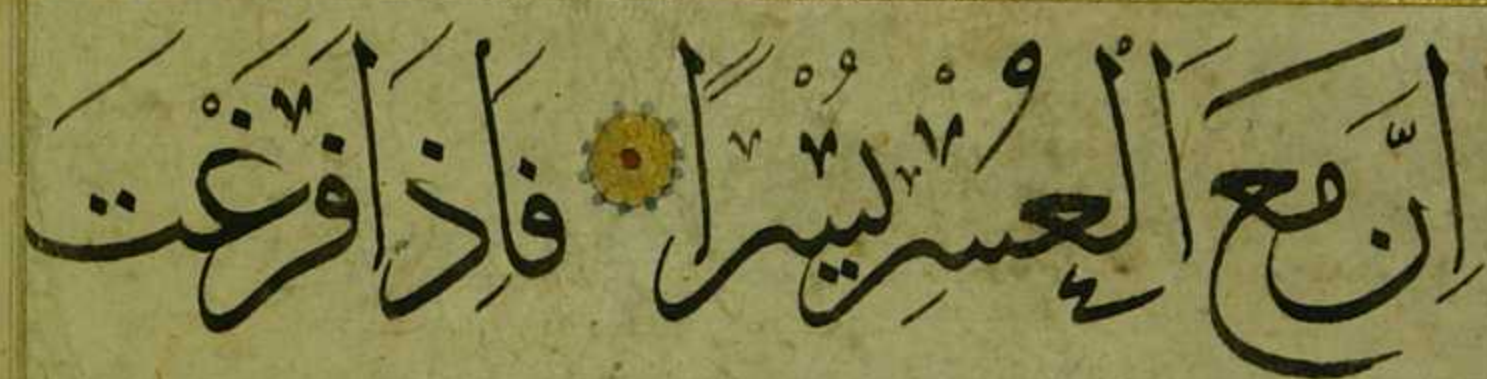 اِنَّ مَعَ الْعُسْرِ يُسْرًا فَاِذَا فَرَغْتَ